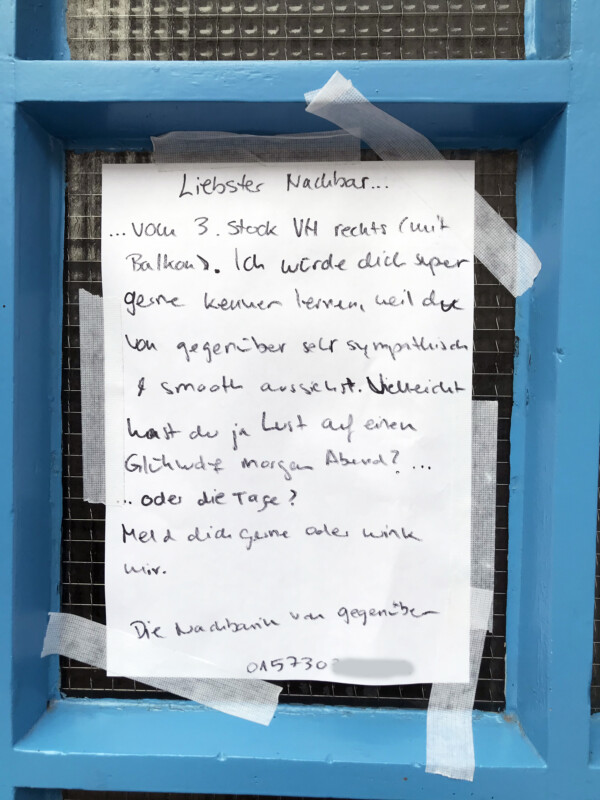 Liebster Nachbar...
... vom 3. Stock VH rechts (mit
Balkon). Ich würde dich super
gerne kennen lernen, weil du
von gegenüber sehr sympathisch
& smooth aussiehst. Vielleicht
hast du ja Lust auf einen
morgen Abend? ...
... oder die Tage?
Meld dich gerne oder wink
mir.
Die Nachbarin von gegenüber
015730